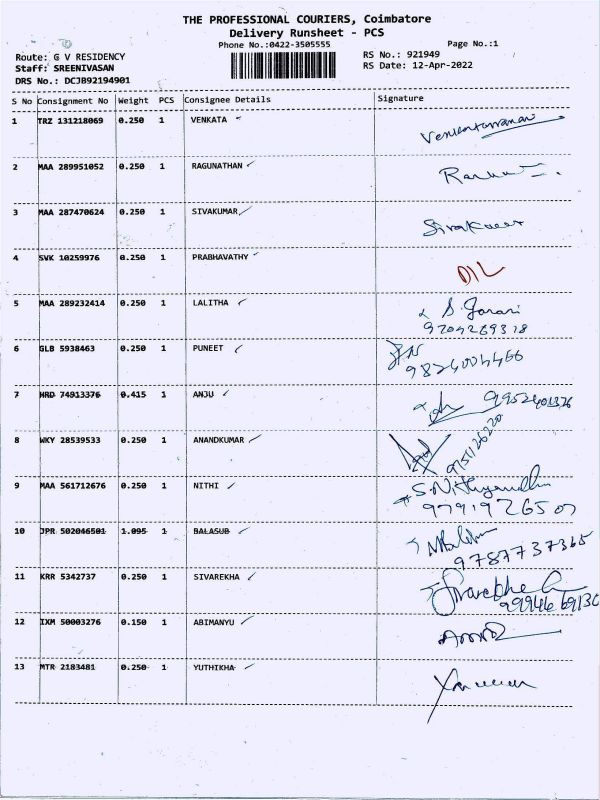 THE PROFESSIONAL COURIERS, Coimbatore
Delivery Runsheet - PCS
Phone No.:0422-3505555
Page No.:1
Route: G V RESIDENCY
RS No.: 921949
Staff: SREENIVASAN
RS Date: 12-Apr-2022
DRS No.: DCJB92194901
S No Consignment No Weight PCS Consignee Details Signature
1 TRZ 131218069 0.250 1 VENKATA
2 MAA 289951052 0.250 1 RAGUNATHAN
3 MAA 287470624 0.250 1 SIVAKUMAR
4 SVK 10259976 0.250 1 PRABHAVATHY
5 MAA 289232414 0.250 1 LALITHA
6 GLB 5938463 0.250 1 PUNEET
7 HRD 74913376 0.415 1 ANJU 9952401376
8 WKY 28539533 0.250 1 ANANDKUMAR
9 MAA 561712676 0.250 1 NITHI
10 JPR 502046501 1.095 1 BALASUB
9787737365
11 KRR 5342737 0.250 1 SIVAREKHA
12 IXM 50003276 0.150 1 ABIMANYU
13 MTR 2183481 0.250 1 YUTHIKHA